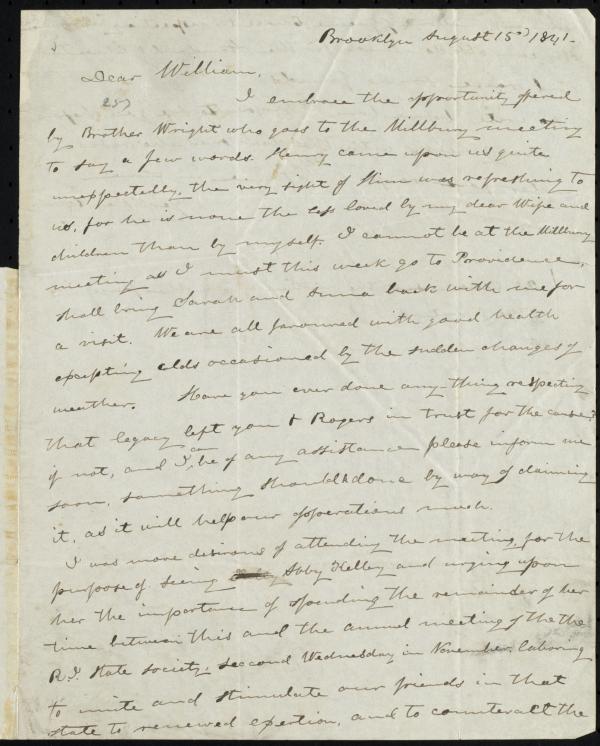 Brooklyn August 15th 1841.
Dear William,
I embrace the opportunity offered
by Brother Wright who goes to the Millbury meeting
to say a few words. Henry came upon us quite
unexpectedly, the very sight of Him was refreshing to
us, for he is none the less loved by my dear Wife and
children than by myself. I cannot be at the Millbury
meeting as I must this week go to Providence,
shall bring Sarah and Anna back with me for
a visit. We are all favoured with good health
excepting colds occasioned by the sudden changes of
weather. Have you ever done any-thing respecting
that legacy left you & Rogers in trust for the cause?
if not, and I can be of any assistance please inform me
soon, something should be done by way of claiming
it, as it will help our opperations much.
I was more desirous of attending the meeting, for the
purpose of seeing Abby Kelley and urging upon
her the importance of spending the remainder of her
time between this and the annual meeting of the the
R.I. State Society, second Wednesday in November, laboring
to unite and stimulate our friends in that
state to renewed exertion, and to counteract the